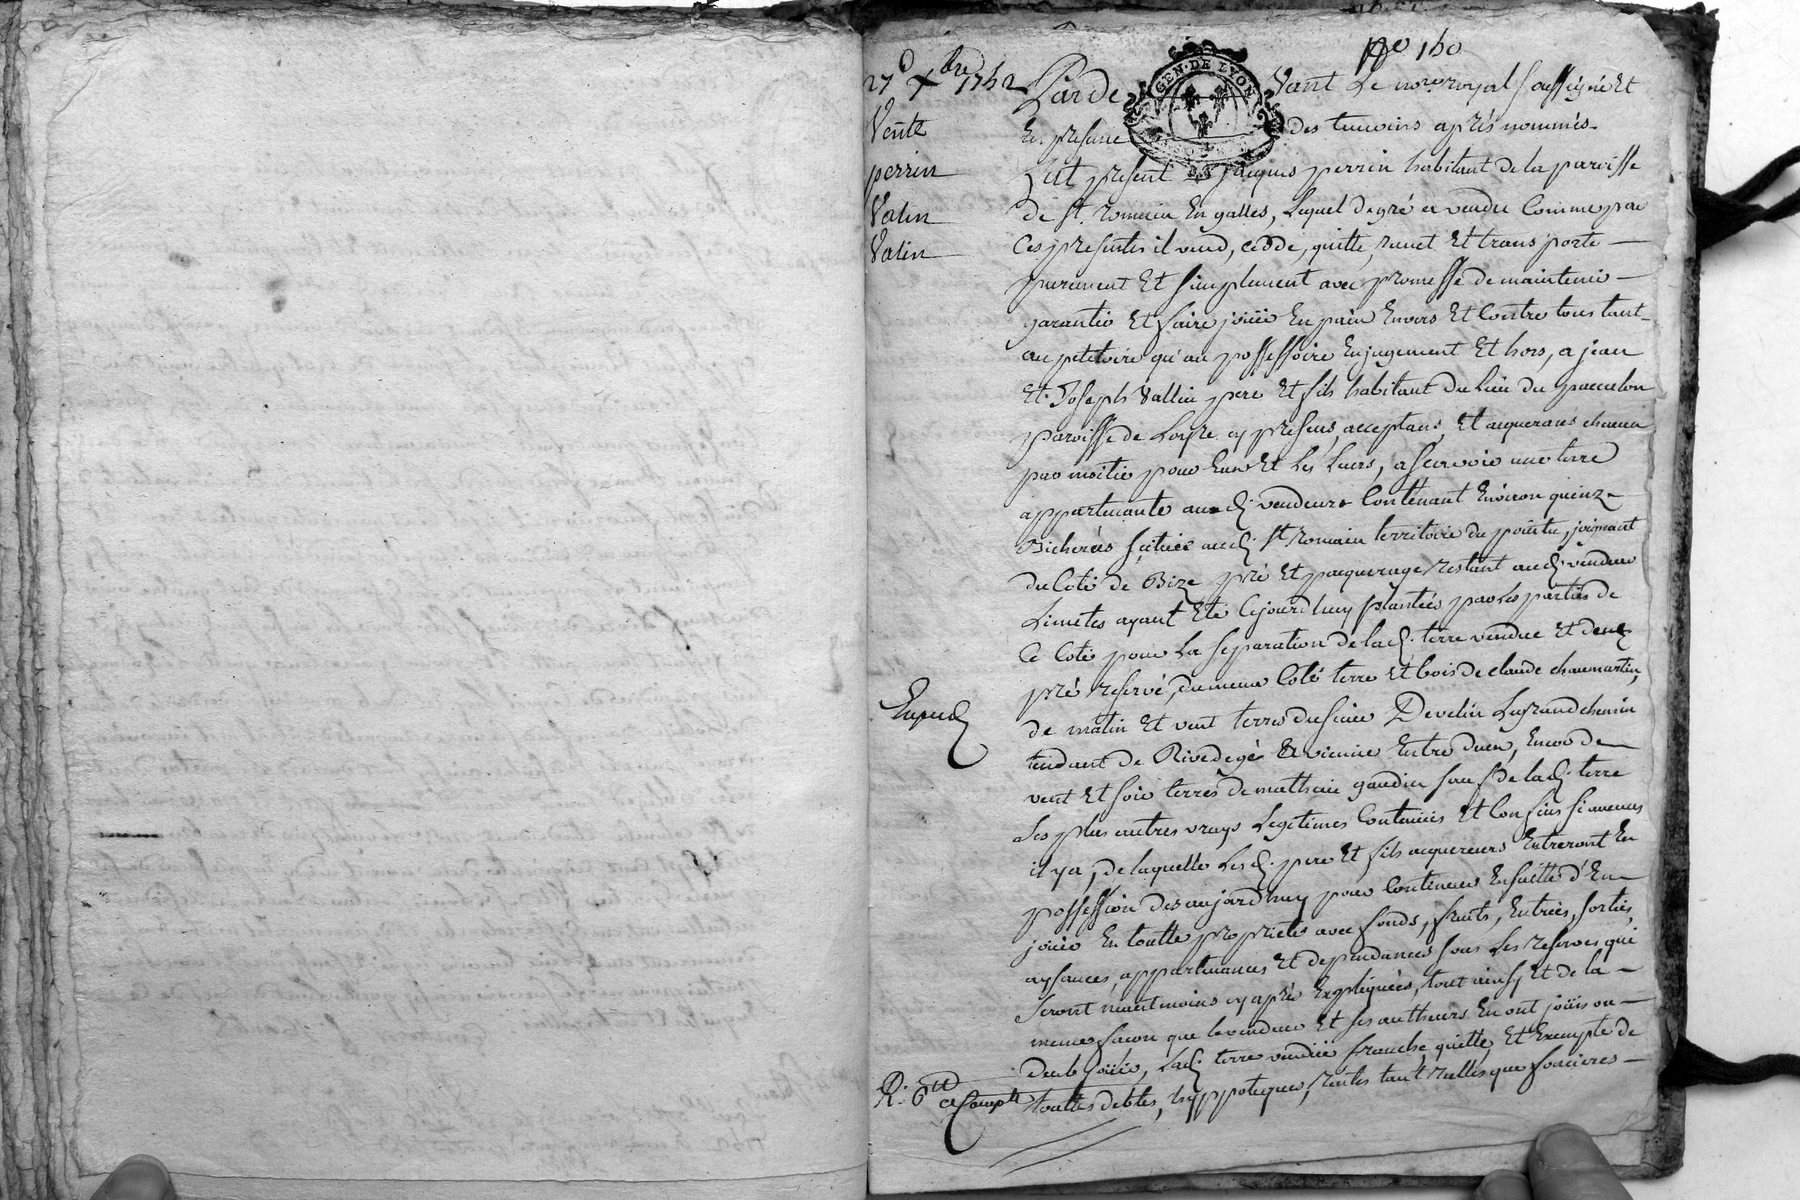 no 150
27e Xbre 1752
Vente
perrin
Valin
Valin
GEN·DE LYON
Parde vant Le nore royal soussigné Et
En presence des temoins après nommés
fut present jacques perrin habitant de la paroisse
de St. romain En galles, Lequel de gré a vendu Comme par
Ces presentes il vend, cedde, quitte, remet Et transporte
purement Et simplement avec promesse de maintenir
garantir Et faire joüir En paix Envers Et Contre tous tant
au petitoire qu'au possessoire En jugement Et hors, a jean
Et Joseph Vallin pere Et fils habitant du Lieu du
paroisse de Loyre cy presens, acceptans, Et aquerans chacun
par moitié pour Eux Et Les Leurs, a scavoir une terre
appartenante aud. vendeur Contenant Environ quinze
Bicherées scituée aud. St. romain territoire du pointu, joignant
du Coté de Bize pré Et paquerage restant aud. vendeur
Limites ayant Eté Cejourdhuy plantées par Les parties de
Ce Coté pour La separation de lad. terre vendue Et dud.
pré reservé, du meme Coté terre Et bois de claude chaumartin,
de matin Et vent terres du sieur Develin Le grand chemin
tendant de Rivedegié a vienne Entre deux, Encor de
vent Et soir terres de mathieu gaudin sauf de lad. terre
Ses plus autres vrays Legitimes Contenus Et Confins si aucuns
il y a, de laquelle Lesd. pere Et fils acquereurs Entreront En
possession des aujourdhuy pour Continuer Ensuitte d'En
joüir En toutte proprieté avec fonds, fruits, Entrées, sorties,
aysances, appartenances Et dependances sous Les reserves qui
Seront neantmoins cy après Expliquées, tout ainsy Et de la
meme facon que le vendeur Et ses autheurs En ont joüis ou
deub joüir, Lad. terre vendüe franche, quitte, Et Exempte de
R: 6tt a Compte
touttes debtes, hyppoteques, rentes tant reelles que foncieres
Expedié